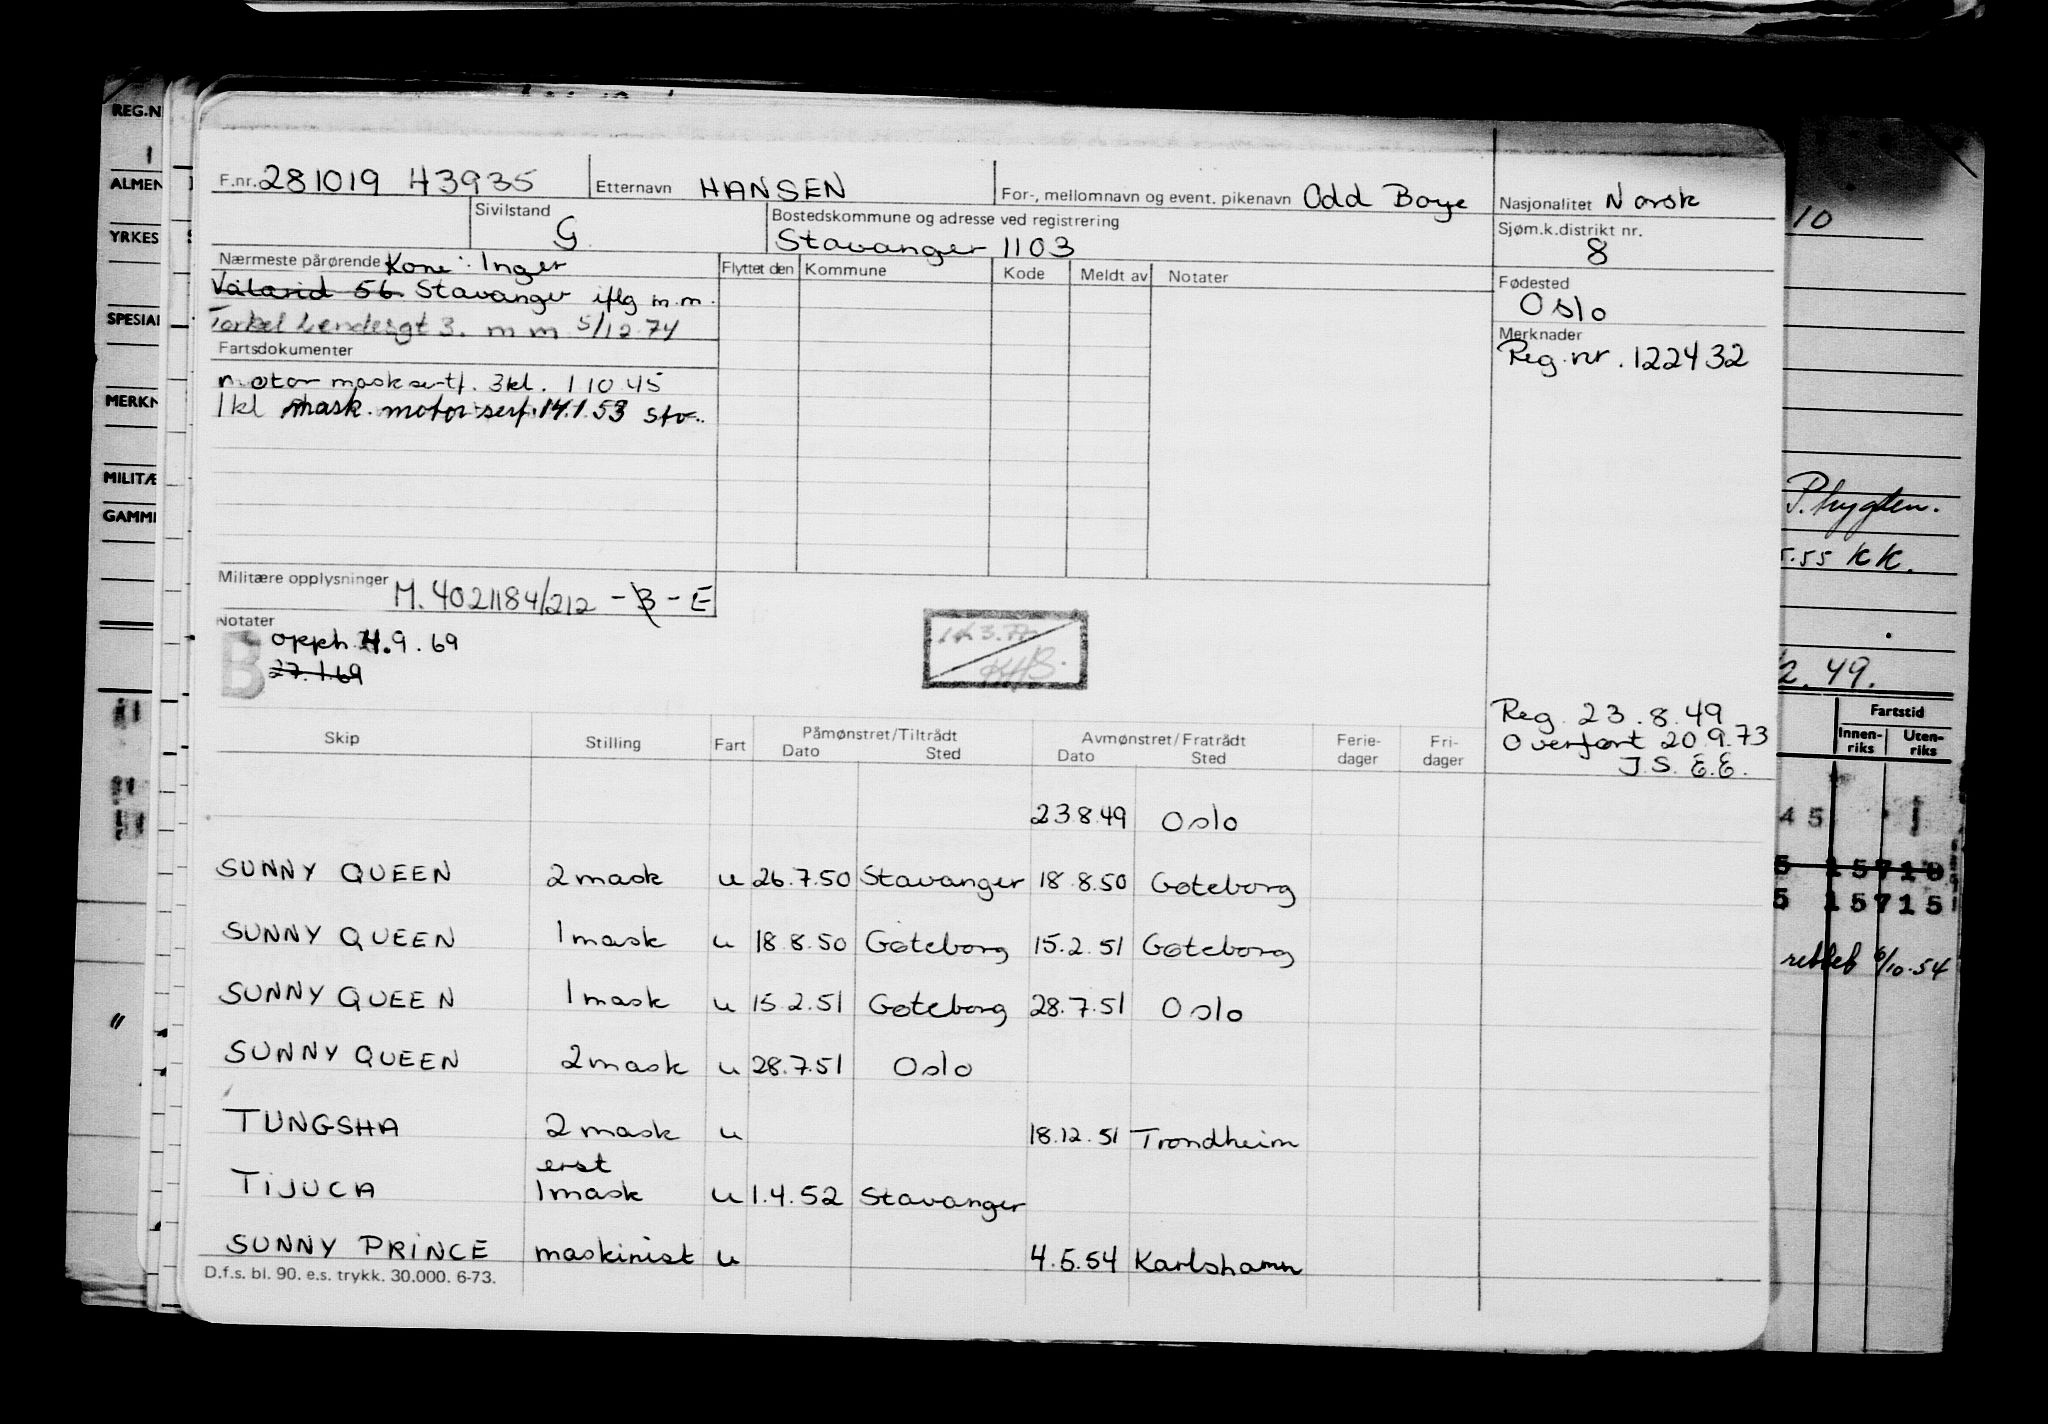 F.nr. 281019 43935 Etternavn HANSEN For-, mellomnavn og event. pikenavn Odd Boye Nasjonalitet Norsk
Sivilstand G Bostedskommune og adresse ved registrering Stavanger 1103 Sjøm.k.distrikt nr. 8
Nærmeste pårørende Kone: Inger
Stavanger iflg m.m.
3. m m 5/12.74
Flyttet den Kommune Kode Meldt av Notater
Fødested
Oslo
Merknader
Reg. nr. 122432
Fartsdokumenter
motor mask sertf. 3kl. 1 10 45
1 kl mask. motor sert. 14.1.53
Militære opplysninger M. 4021184/212 - B - E
Notater
B opph. 4.9.69
27.1.69
Reg. 23.8.49
Overført 20.9.73
J.S. E.E.
Skip Stilling Fart Påmønstret/Tiltrådt Dato Sted Avmønstret/Fratrådt Dato Sted Ferie-dager Fri-dager
23.8.49 Oslo
SUNNY QUEEN 2 mask u 26.7.50 Stavanger 18.8.50 Gøteborg
SUNNY QUEEN 1 mask u 18.8.50 Gøteborg 15.2.51 Gøteborg
SUNNY QUEEN 1 mask u 15.2.51 Gøteborg 28.7.51 Oslo
SUNNY QUEEN 2 mask u 28.7.51 Oslo
TUNGSHA 2 mask u 18.12.51 Trondheim
erst
TIJUCA 1 mask u 1.4.52 Stavanger
SUNNY PRINCE maskinist u 4.5.54 Karlshamn
D.f.s. bl. 90. e.s. trykk. 30.000. 6-73.
REG.N
ALMEN
YRKES
SPESIAL
MERKN
MILITÆ
GAMMI
10
.55 KK.
2. 49.
Fartstid
Innen-riks Uten-riks
45
5 15718
5 15715
rettet 6/10.54